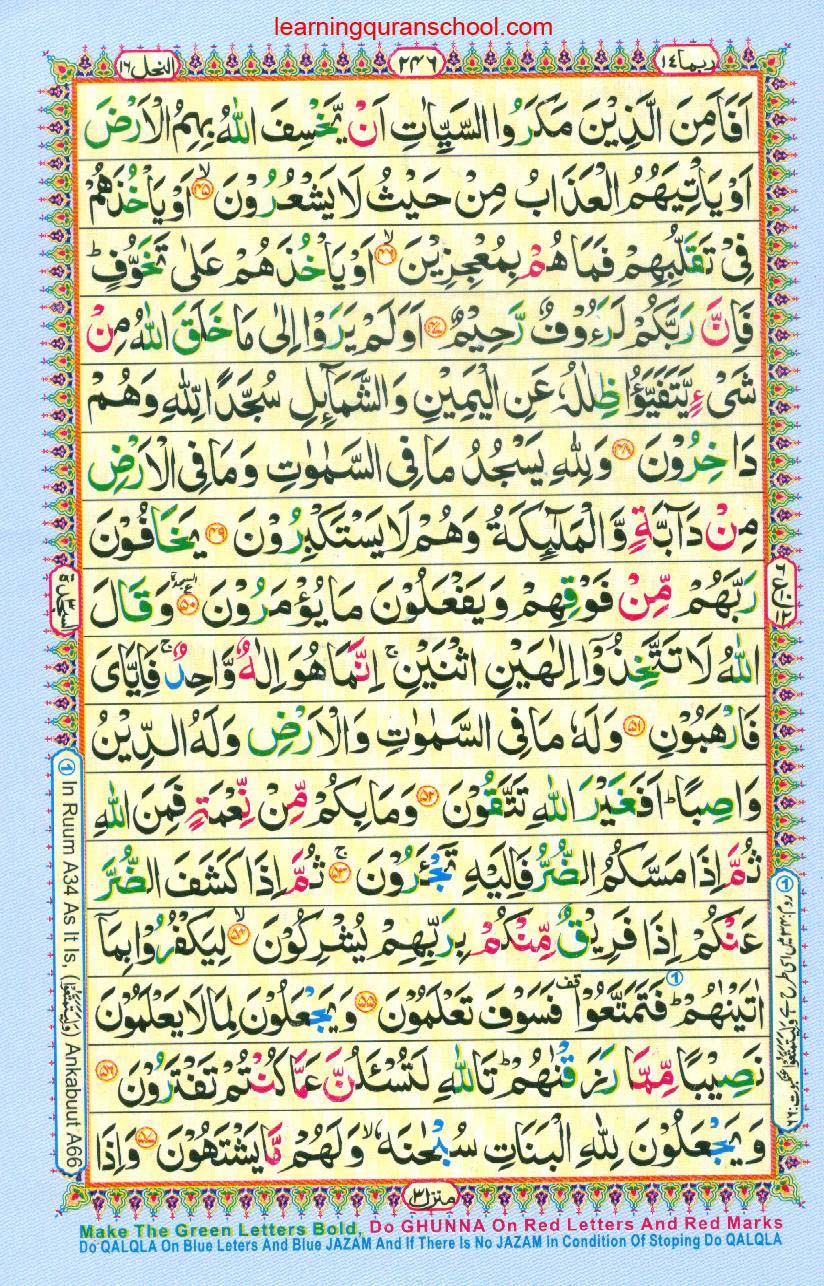 learningquranschool.com
ربما ١٤
٢٤٦
النحل ١٦
اَفَاَمِنَ الَّذِیْنَ مَكَرُوا السَّیِّاٰتِ اَنْ یَّخْسِفَ اللّٰهُ بِهِمُ الْاَرْضَ
اَوْ یَاْتِیَهُمُ الْعَذَابُ مِنْ حَیْثُ لَا یَشْعُرُوْنَ ۙ﴿۴۵﴾ اَوْ یَاْخُذَهُمْ
فِیْ تَقَلُّبِهِمْ فَمَا هُمْ بِمُعْجِزِیْنَ ۙ﴿۴۶﴾ اَوْ یَاْخُذَهُمْ عَلٰی تَخَوُّفٍ ؕ
فَاِنَّ رَبَّكُمْ لَرَءُوْفٌ رَّحِیْمٌ ﴿۴۷﴾ اَوَلَمْ یَرَوْا اِلٰی مَا خَلَقَ اللّٰهُ مِنْ
شَیْءٍ یَّتَفَیَّؤُا ظِلٰلُهٗ عَنِ الْیَمِیْنِ وَ الشَّمَآىِٕلِ سُجَّدًا لِّلّٰهِ وَ هُمْ
دَاخِرُوْنَ ﴿۴۸﴾ وَ لِلّٰهِ یَسْجُدُ مَا فِی السَّمٰوٰتِ وَ مَا فِی الْاَرْضِ
مِنْ دَآبَّةٍ وَّ الْمَلٰٓىِٕكَةُ وَ هُمْ لَا یَسْتَكْبِرُوْنَ ﴿۴۹﴾ یَخَافُوْنَ
رَبَّهُمْ مِّنْ فَوْقِهِمْ وَ یَفْعَلُوْنَ مَا یُؤْمَرُوْنَ ﴿۵۰﴾ وَ قَالَ
اللّٰهُ لَا تَتَّخِذُوْۤا اِلٰهَیْنِ اثْنَیْنِ ۚ اِنَّمَا هُوَ اِلٰهٌ وَّاحِدٌ ۚ فَاِیَّایَ
فَارْهَبُوْنِ ﴿۵۱﴾ وَ لَهٗ مَا فِی السَّمٰوٰتِ وَ الْاَرْضِ وَ لَهُ الدِّیْنُ
وَاصِبًا ؕ اَفَغَیْرَ اللّٰهِ تَتَّقُوْنَ ﴿۵۲﴾ وَ مَا بِكُمْ مِّنْ نِّعْمَةٍ فَمِنَ اللّٰهِ
ثُمَّ اِذَا مَسَّكُمُ الضُّرُّ فَاِلَیْهِ تَجْـَٔرُوْنَ ۚ﴿۵۳﴾ ثُمَّ اِذَا كَشَفَ الضُّرَّ
عَنْكُمْ اِذَا فَرِیْقٌ مِّنْكُمْ بِرَبِّهِمْ یُشْرِكُوْنَ ۙ﴿۵۴﴾ لِیَكْفُرُوْا بِمَاۤ
اٰتَیْنٰهُمْ ؕ فَتَمَتَّعُوْا ۫ فَسَوْفَ تَعْلَمُوْنَ ﴿۵۵﴾ وَ یَجْعَلُوْنَ لِمَا لَا یَعْلَمُوْنَ
نَصِیْبًا مِّمَّا رَزَقْنٰهُمْ ؕ تَاللّٰهِ لَتُسْـَٔلُنَّ عَمَّا كُنْتُمْ تَفْتَرُوْنَ ﴿۵۶﴾
وَ یَجْعَلُوْنَ لِلّٰهِ الْبَنَاتِ سُبْحٰنَهٗ ۙ وَ لَهُمْ مَّا یَشْتَهُوْنَ ﴿۵۷﴾ وَ اِذَا
السجدة ٣
① In Ruum A34 As It Is, (وَلِیَتَمَتَّعُوْا) Ankabuut A66
منزل ٣
Make The Green Letters Bold, Do GHUNNA On Red Letters And Red Marks
Do QALQLA On Blue Leters And Blue JAZAM And If There Is No JAZAM In Condition Of Stoping Do QALQLA